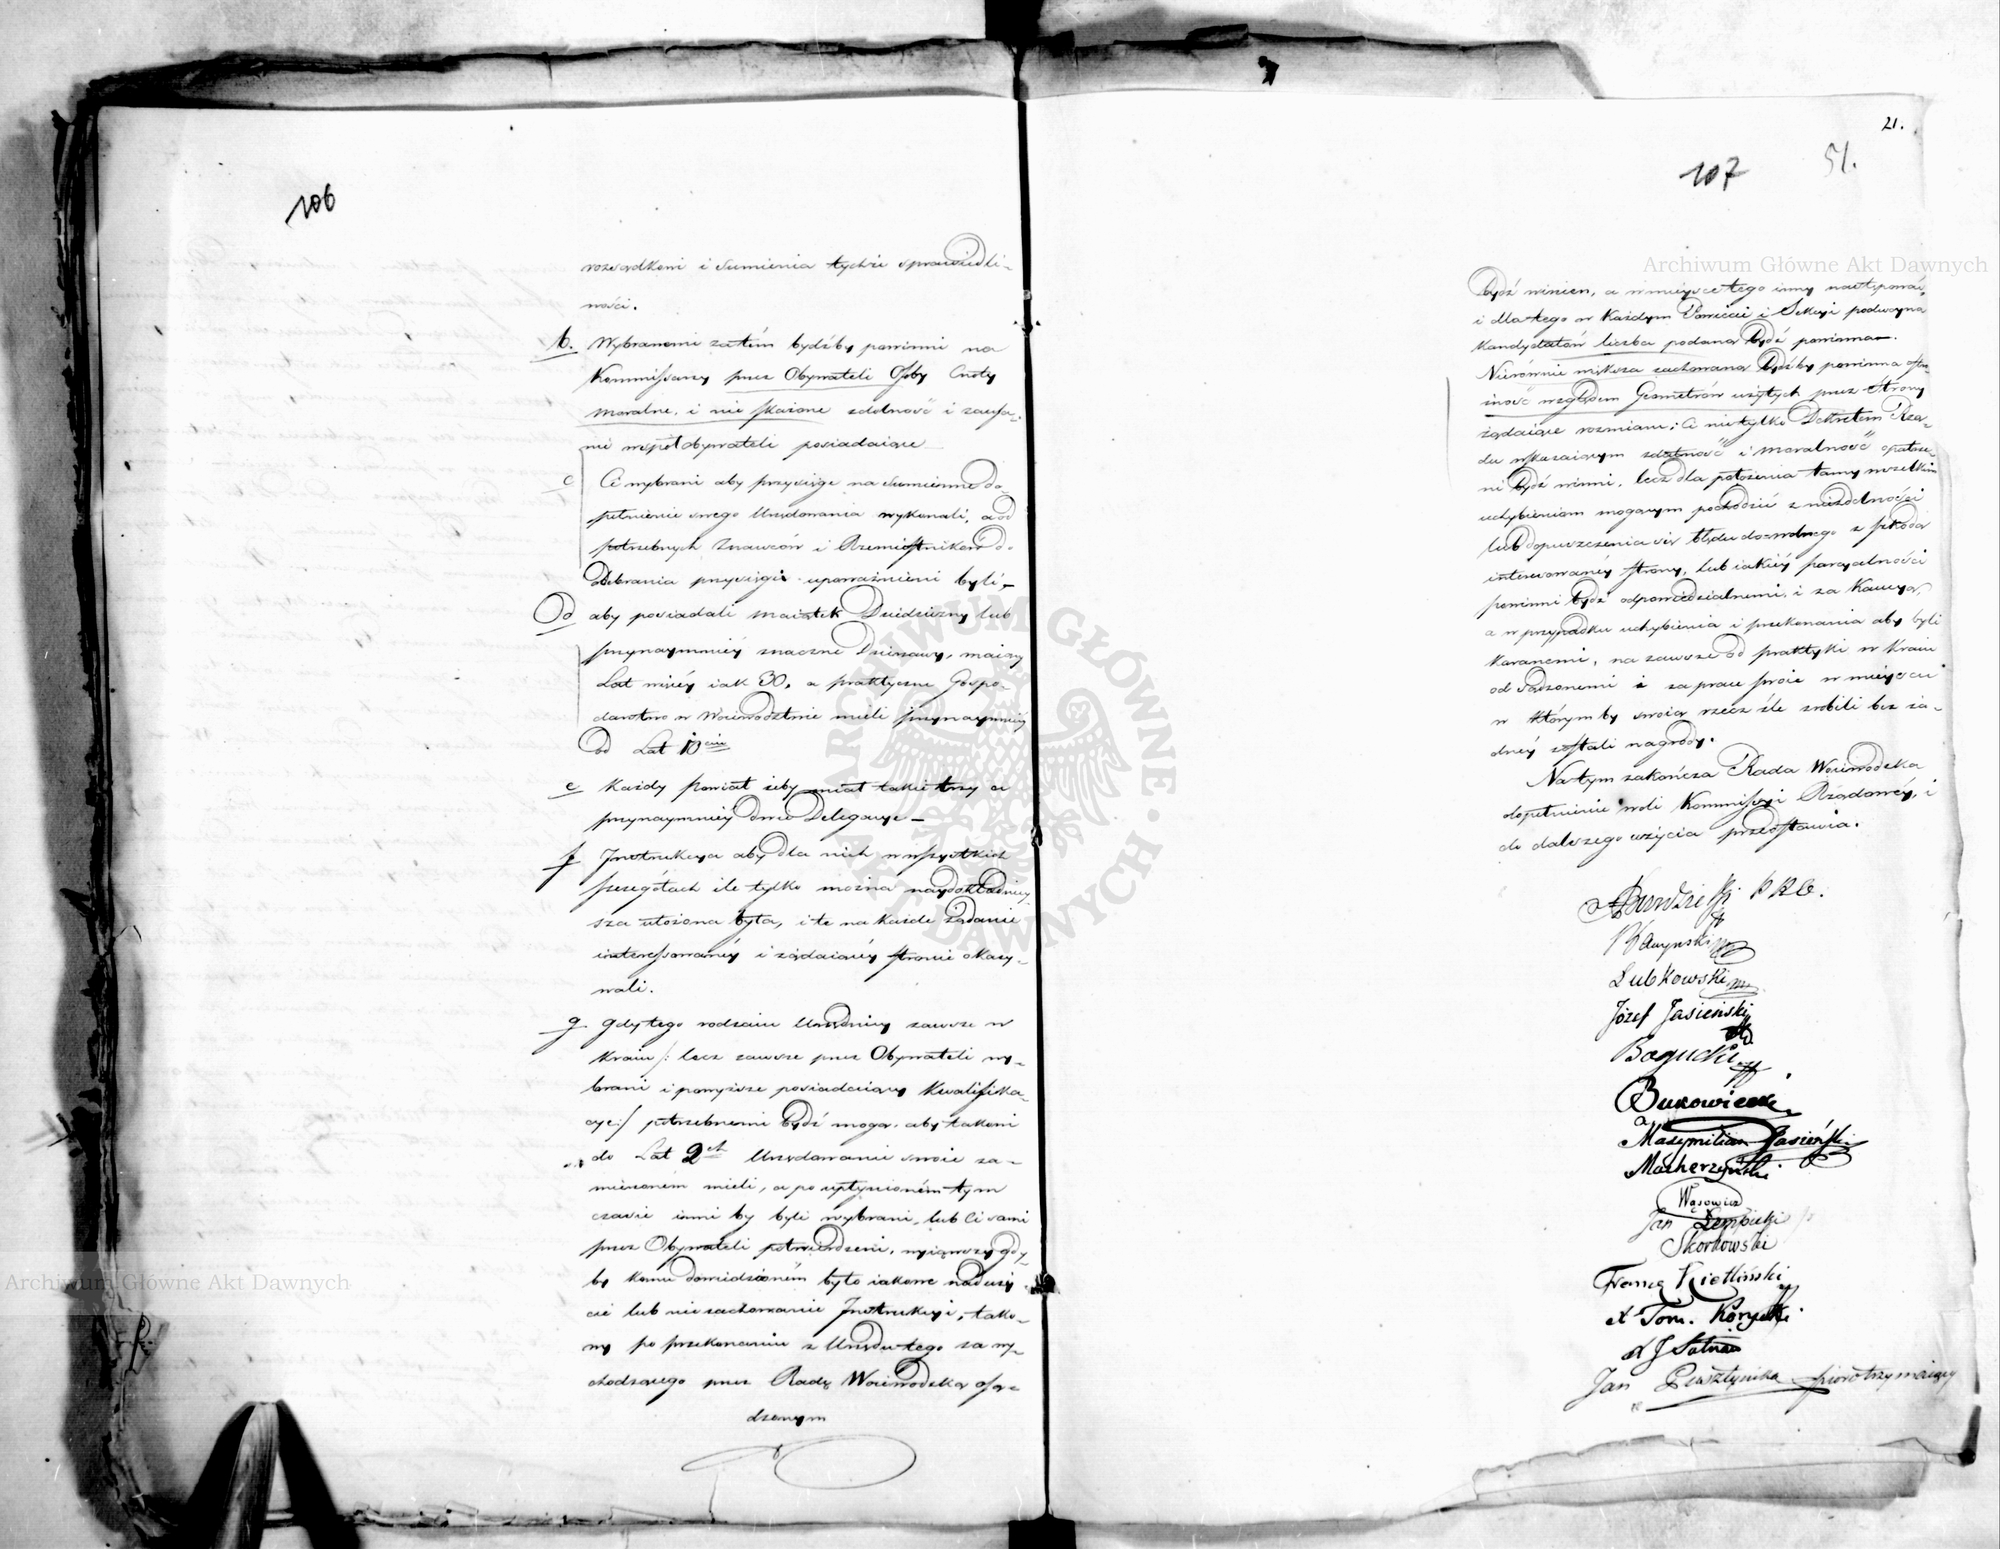 106
rozsądkowi i Sumienia tychże sprawiedli-
wości.
b. Wybranemi zatém bydź by powinni na
Kommissarzy przez Obywateli Osoby Cnoty
moralne, i nie skażone zdolność i zaufa-
nie współobywateli posiadaiące
c Ci wybrani aby przysięgę na Sumienne do-
pełnienie swego Urzędowania wykonali, a od
potrzebnych Znawców i Rzemieślników do
odebrania przysięgi upoważnieni byli –
d aby posiadali maiątek Dziedziczny lub
przynaymniéy znaczne Dzierżawy, maiący
Lat więcéy iak 30, a praktyczne Gospo-
darstwo w Woiewództwie mieli przynaymniéy
od Lat 10ciu
e Każdy powiat żeby miał takie trzy a
przynaymniéy dwie Delegacye –
f Instrukcya aby dla nich w wszystkich
szczegółach ile tylko można naydokładniey-
sza ułożona była, i tę na każde żądanie
interessowanéy i żądaiącéy stronie okazy-
wali.
g Gdy tego rodzaiu Urzędnicy zawsze w
Kraiu /: lecz zawsze przez Obywateli wy-
brani i powyższe posiadaiący kwalifika-
cye :/ potrzebnemi bydź mogą, aby takowi
do Lat 2ch Urzędowanie swoie za-
mierzoném mieli, a po upłynioném tym
czasie inni by byli wybrani, lub Ci sami
przez Obywateli potwierdzeni, wyiąwszy gdy
by komu dowiedzioném było iakowe naduży-
cie lub niezachowanie Instrukcyi, tako-
wy po przekonaniu z Urzędu tego za wy-
chodzącego przez Radę Woiewódzką osą-
dzonym
21.
107 51.
bydź winien, a w mieysce tego inny następować,
i dla tego w każdym Powiecie i Sekcyi podwoyna
Kandydatów liczba podana bydź powinna.
Nierównie większa zachowana bydź by powinna ostro-
żność względem Geometrów użytych przez Strony
żądaiące rozmiaru; Ci nie tylko Dekretem Rzą-
du wskazaiącym zdatność i moralność opatrze-
ni bydź winni, lecz dla położenia tamy wszelkim
uchybieniom mogącym pochodzić z niezdolności
lub dopuszczenia się błędu z szkodą
interesowaney strony, lub iakiéy parcyalności
powinni bydź odpowiedzialnemi, i za Kaucyą,
a w przypadku uchybienia i przekonania aby byli
karanemi, na zawsze od praktyki w Kraiu
odsądzonemi i za prace swoie w mieyscu
w którym by swoią rzecz źle zrobili bez ża-
dnéy zostali nagrody.
Na tym zakończa Rada Woiewódzka
dopełnienie woli Kommissyi Rządowéy, i
do dalszego użycia przedstawia.
Lubkowski
Józef Jasieński
Bogucki
Bukowiecki
Maxymilian Jasieński
Macherzyński
Wąsowicz
Jan Łempicki
Skorkowski
Franc Kietliński
Tom. Konycki
Jan piórotrzymaiący
Archiwum Główne Akt Dawnych
Archiwum Główne Akt Dawnych
ARCHIWUM GŁÓWNE AKT DAWNYCH